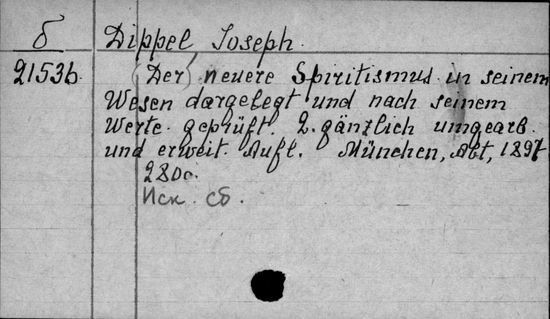 б
Dippel, Joseph.
21536.
(Der) neuere Spiritismus in seinem
Wesen dargelegt und nach seinem
Werte geprüft. 2. gänzlich umgearb.
und erweit. Aufl. München, Abt, 1897
280c.
Иск. сб.